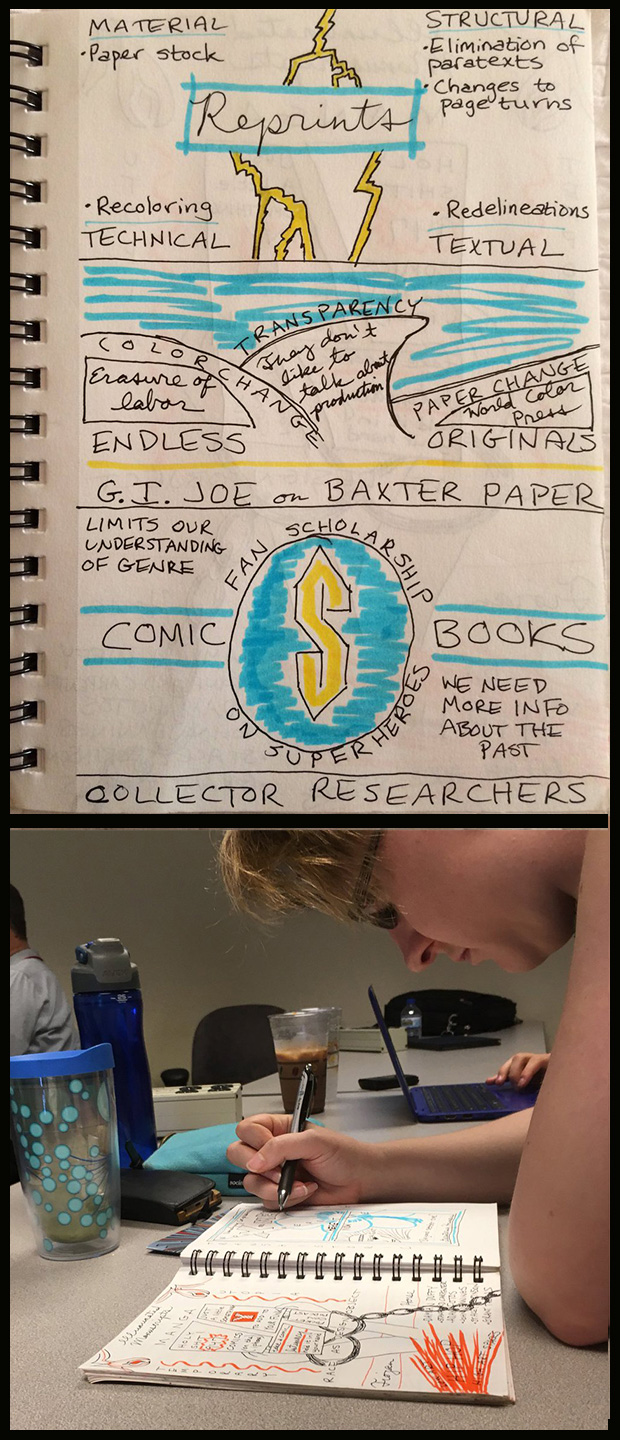 MATERIAL
• Paper stock
STRUCTURAL
• Elimination of
paratexts
• Changes to
page turns
Reprints
• Recoloring
TECHNICAL
• Redelineations
TEXTUAL
TRANSPARENCY
They don't
like to
talk about
production
COLOR CHANGE
Erasure of
labor
PAPER CHANGE
World Color
Press
ENDLESS
ORIGINALS
G.I. JOE on BAXTER PAPER
LIMITS OUR
UNDERSTANDING
OF GENRE
FAN SCHOLARSHIP
S
ON SUPERHEROES
COMIC
BOOKS
WE NEED
MORE INFO
ABOUT THE
PAST
COLLECTOR RESEARCHERS
MANGA